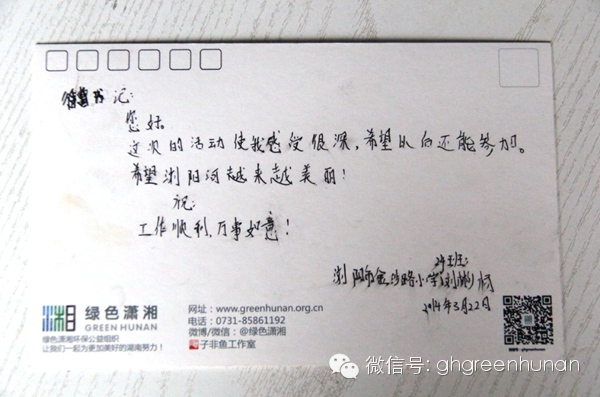 书记:
您好。
这次的活动使我感受很深,希望以后还能参加。
希望浏阳河越来越美丽!
祝:
工作顺利,万事如意!
浏阳市金沙路小学
2014年3月22日
湘 绿色潇湘
GREEN HUNAN
绿色潇湘环保公益组织
让我们一起为更加美好的湖南努力!
网址:www.greenhunan.org.cn
电话:0731-85861192
微博/微信:@绿色潇湘
子非鱼工作室
微信号: ghgreenhunan